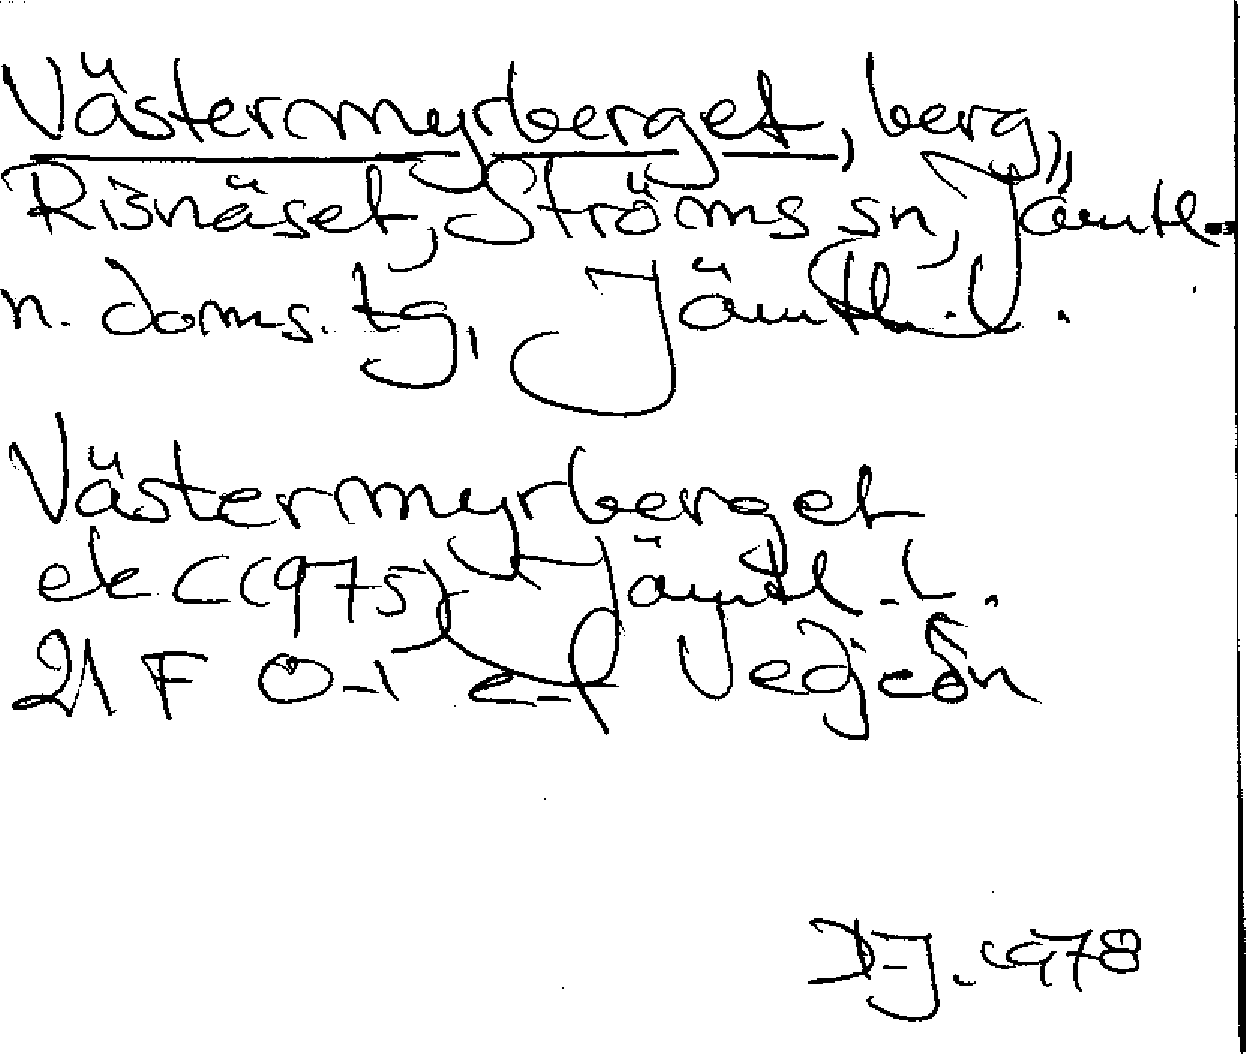 Västermyrberget, berg,
Risnäset, Ströms sn, Jämtl.
n. doms. tg, Jämtl. l.
Västermyrberget
ek (1975) Jämtl. l.
21 F 0-1 e-f Vegeån
D-J. 1978